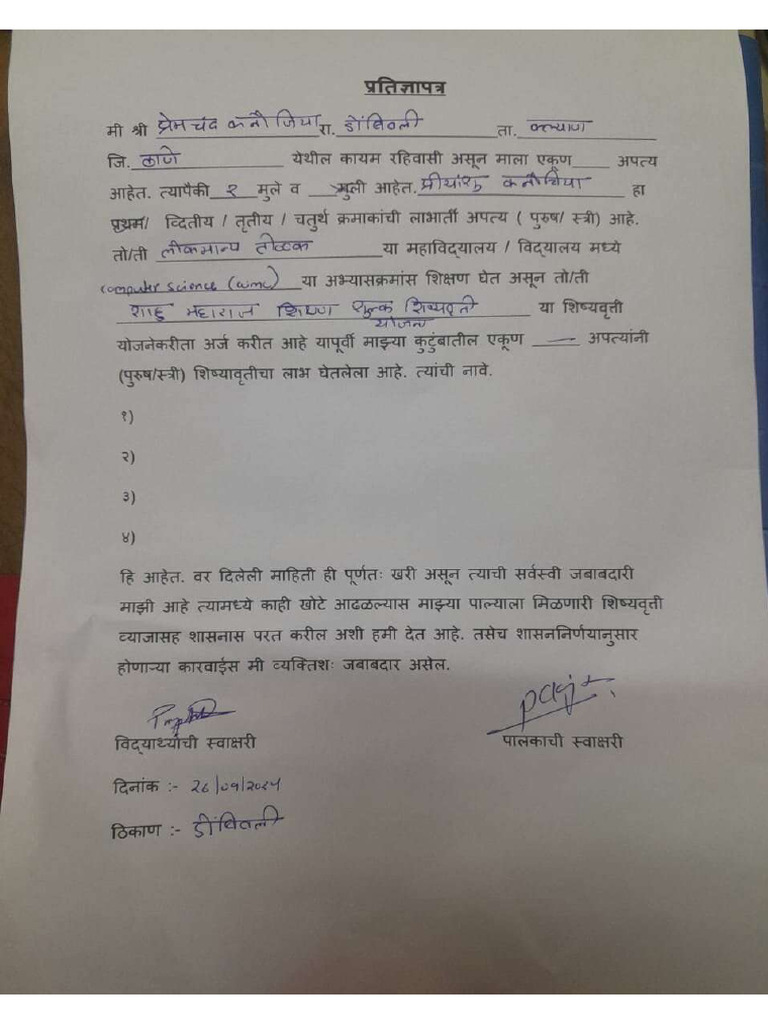 प्रतिज्ञापत्र
मी श्री प्रेमचंद कनौजिया रा. डोंबिवली ता. कल्याण
जि. ठाणे येथील कायम रहिवासी असून माला एकूण____ अपत्य
आहेत. त्यापैकी २ मुले व __ मुली आहेत. प्रीयांशु कनौजिया हा
प्रथम/ व्दितीय / तृतीय / चतुर्थ क्रमाकांची लाभार्ती अपत्य ( पुरुष/ स्त्री) आहे.
तो/ती लोकमान्य तीळक या महाविद्यालय / विद्यालय मध्ये
computer science (aiml) या अभ्यासक्रमांस शिक्षण घेत असून तो/ती
शाहु महाराज शिष्यण शुल्क शिष्यवृती या शिष्यवृत्ती
योजना
योजनेकरीता अर्ज करीत आहे यापूर्वी माझ्या कुटुंबातील एकूण — अपत्यांनी
(पुरुष/स्त्री) शिष्यावृतीचा लाभ घेतलेला आहे. त्यांची नावे.
१)
२)
३)
४)
हि आहेत. वर दिलेली माहिती ही पूर्णतः खरी असून त्याची सर्वस्वी जबाबदारी
माझी आहे त्यामध्ये काही खोटे आढळल्यास माझ्या पाल्याला मिळणारी शिष्यवृत्ती
व्याजासह शासनास परत करील अशी हमी देत आहे. तसेच शासननिर्णयानुसार
होणाऱ्या कारवाईस मी व्यक्तिशः जबाबदार असेल.
विद्यार्थ्याची स्वाक्षरी पालकाची स्वाक्षरी
दिनांक :- 26/09/2024
ठिकाण :- डोंबिवली